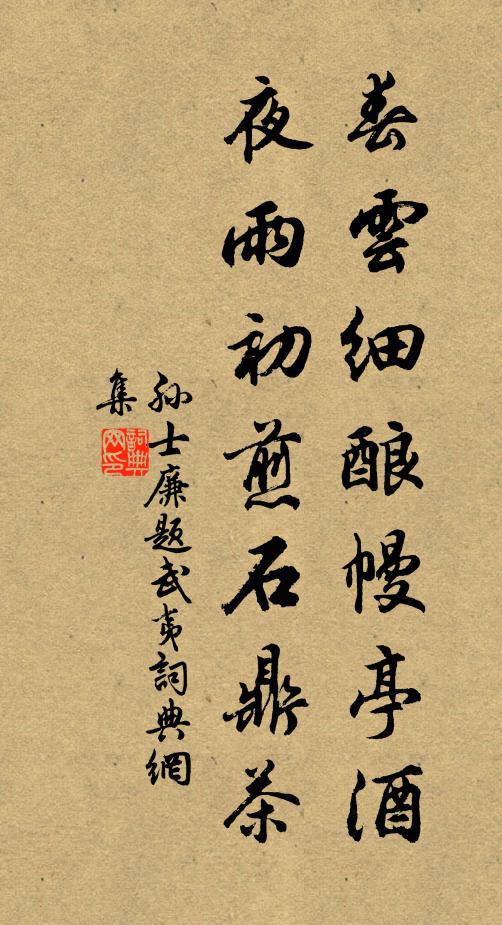 春雲细酿幔亭酒
夜雨初煎石鼎茶
孙士廉题武夷詞典網
集
詞典網印